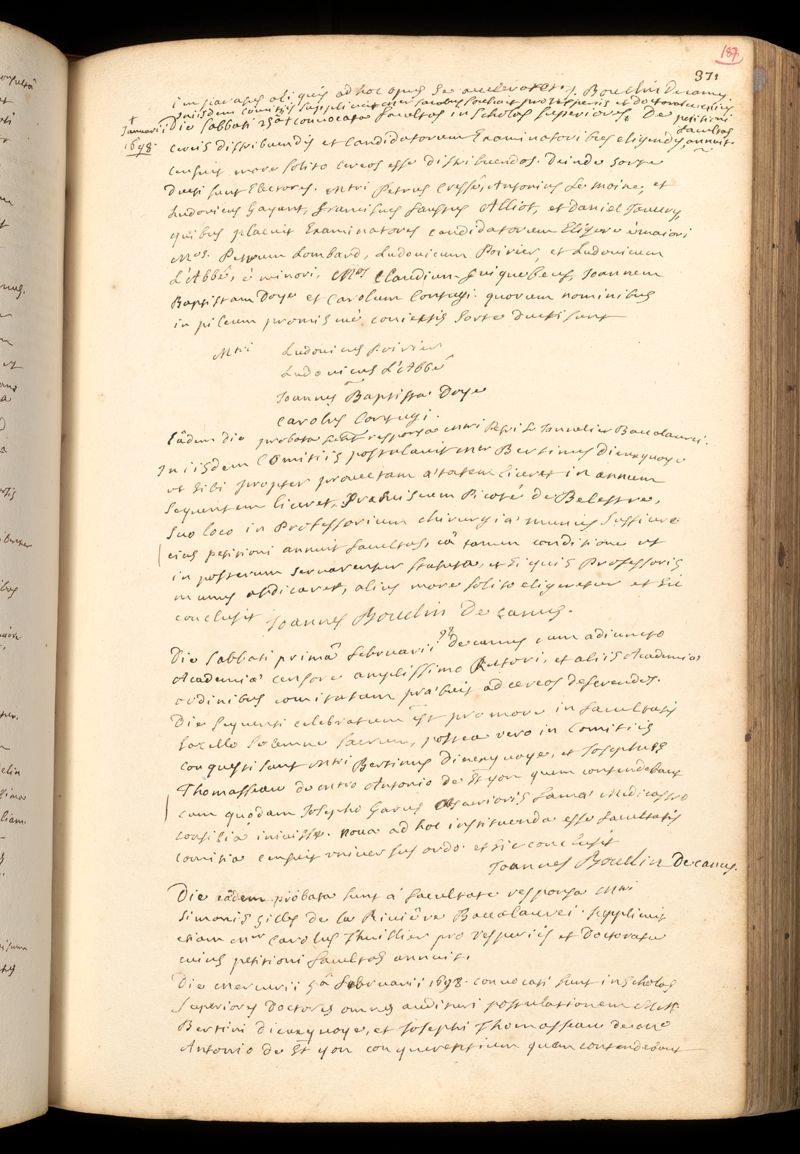 187
371
imparatus aliquis ad hoc opus se accederet. J. Boudin Decanus.
iisdem comitiis supplicavit mer Jacobus pro vesperiis et doctoratu cuius petitioni facultas annuit.
Januarii 1698.
Die Sabbati 25â convocata facultas in scholas superiores de
cereis distribuendis et candidatorum Examinatoribus eligendis,
censuit more solito cereos esse distribuendos. Deinde sorte
ducti sunt Electores. Mtri Petrus Cressé, Antonius Le Moine, et
Ludovicus Gayant, Franciscus Alliot, et Daniel
quibus placuit Examinatores candidatorum Eligere è maiori
Mos. Petrum Lombard, Ludovicum Poirier, et Ludovicum
L'Abbé, è minori, Mos Claudium Joannem
Baptistam Doye et Carolum Contugi. quorum nominibus
in pileum promiscuè coniectis sorte ducti sunt
Mtri Ludovicus Poirier
Ludovicus L'Abbé
Joannes Baptista Doye
Carolus Contugi.
Eâdem die probata sunt responsa Mtri Le Tonnelier Baccalaurei.
In iisdem Comitiis postulavit mer Bertinus Dieuxyvoye
ut sibi propter provectam aetatem liceret in annum
sequentem liceret, Franciscum Picoté de Belestre,
suo loco in Professorium chirurgiae munus sufficere
eius petitioni annuit facultas, eâ tamen conditione ut
in posterum servarentur statuta, et si quis Professoris
munus abdicaret, alius more solito eligeretur et sic
conclusit Joannes Boudin Decanus.
Die Sabbati primâ Februarii 98 decanus cum adiuncto
Academiae censore amplissimo Rectori, et aliis Academiae
ordinibus comitatum praebuit ad cereos deferendos.
Die sequenti celebratum est pro more in facultatis
sacello solemne sacrum, postea vero in Comitiis
conquesti sunt Mtri Bertinus Dieuxyvoye, et Josephus
Thomasseau de mro Antonio de St yon quem contendebant
cum quodam Josepho Garus obscurioris famae Medicastro
consilia iniisse. nova ad hoc instituenda esse facultatis
comitia censuit universus ordo. et sic conclusit
Joannes Boudin Decanus.
Die eâdem probata sunt à facultate responsa Mtri
Simonis Gilles de la Rivière Baccalaurei. supplicuit
etiam mer Carolus Thuillier pro vesperiis et Doctoratu
cuius petitioni facultas annuit.
Die mercurii 5â Februarii 1698. convocati sunt in scholas
superiores Doctores omnes audituri postulationem
Bertini Dieuxyvoye, et Josephi Thomasseau de mro
Antonio de St yon conquerentium quem contendebant